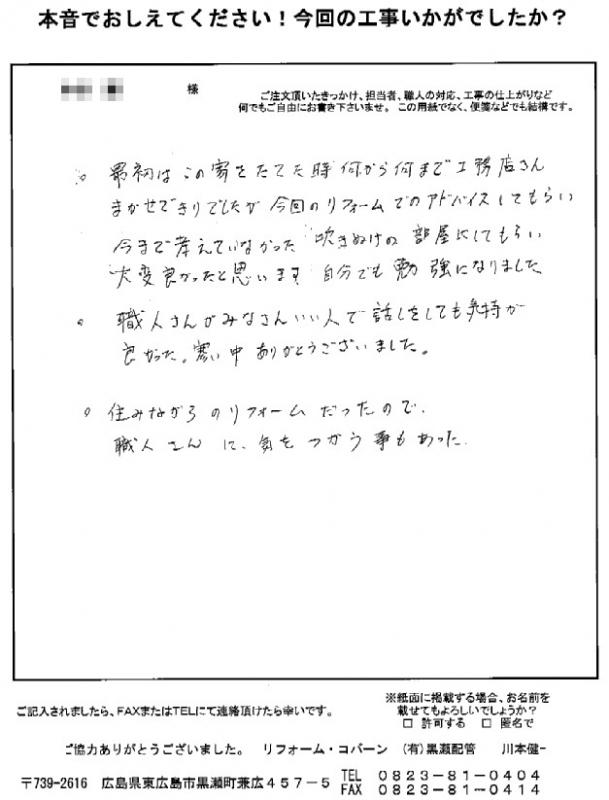 本音でおしえてください！今回の工事いかがでしたか？
様
ご注文頂いたきっかけ、担当者、職人の対応、工事の仕上がりなど
何でもご自由にお書き下さいませ。この用紙でなく、便箋などでも結構です。
○ 最初は この家をたてた時 何から何まで 工務店さん
まかせできりでしたが 今回のリフォームでのアドバイスしてもらい
今まで考えていなかった 吹きぬけの 部屋にしてもらい
大変良かったと思います 自分でも 勉強になりました
○ 職人さんがみなさんいい人で 話しをしても気持が
良かった。寒い中 ありがとうございました。
○ 住みながらのリフォーム だったので、
職人さんに、気をつかう事もあった.
ご記入されましたら、FAXまたはTELにて連絡頂けたら幸いです。
※紙面に掲載する場合、お名前を
載せてもよろしいでしょうか？
□ 許可する □ 匿名で
ご協力ありがとうございました。 リフォーム・コバーン （有）黒瀬配管 川本健一
〒739-2616 広島県東広島市黒瀬町兼広４５７－５ TEL ０８２３－８１－０４０４
FAX ０８２３－８１－０４１４